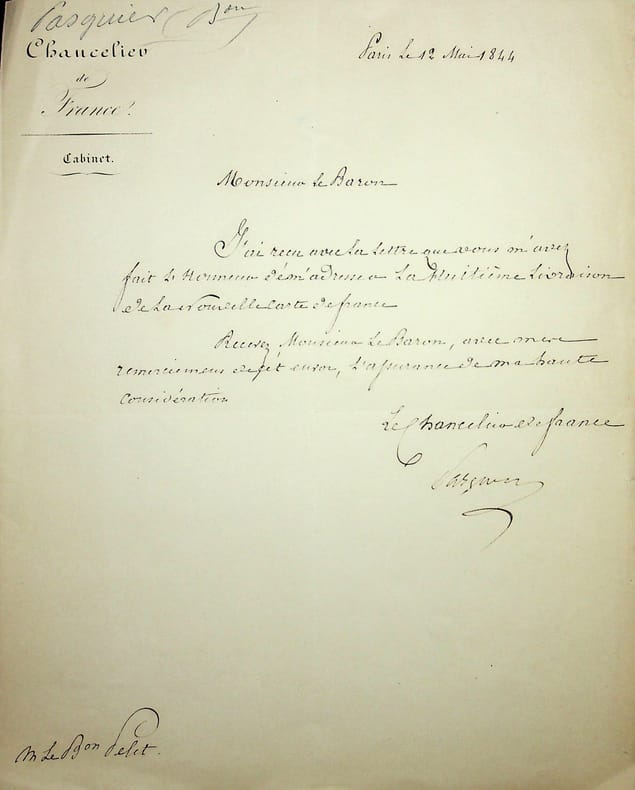 Pasquier (Bon)
Chancelier
de
France.
Cabinet.
Paris le 12 Mai 1844
Monsieur le Baron
J'ai reçu avec la lettre que vous m'avez
fait l'honneur de m'adresser la huitième livraison
de la nouvelle Carte de france
Recevez Monsieur Le Baron, avec mes
remerciemens de cet envoi, l'assurance de ma haute
considération
Le Chancelier de france
Pasquier
M Le Bon Pelet.